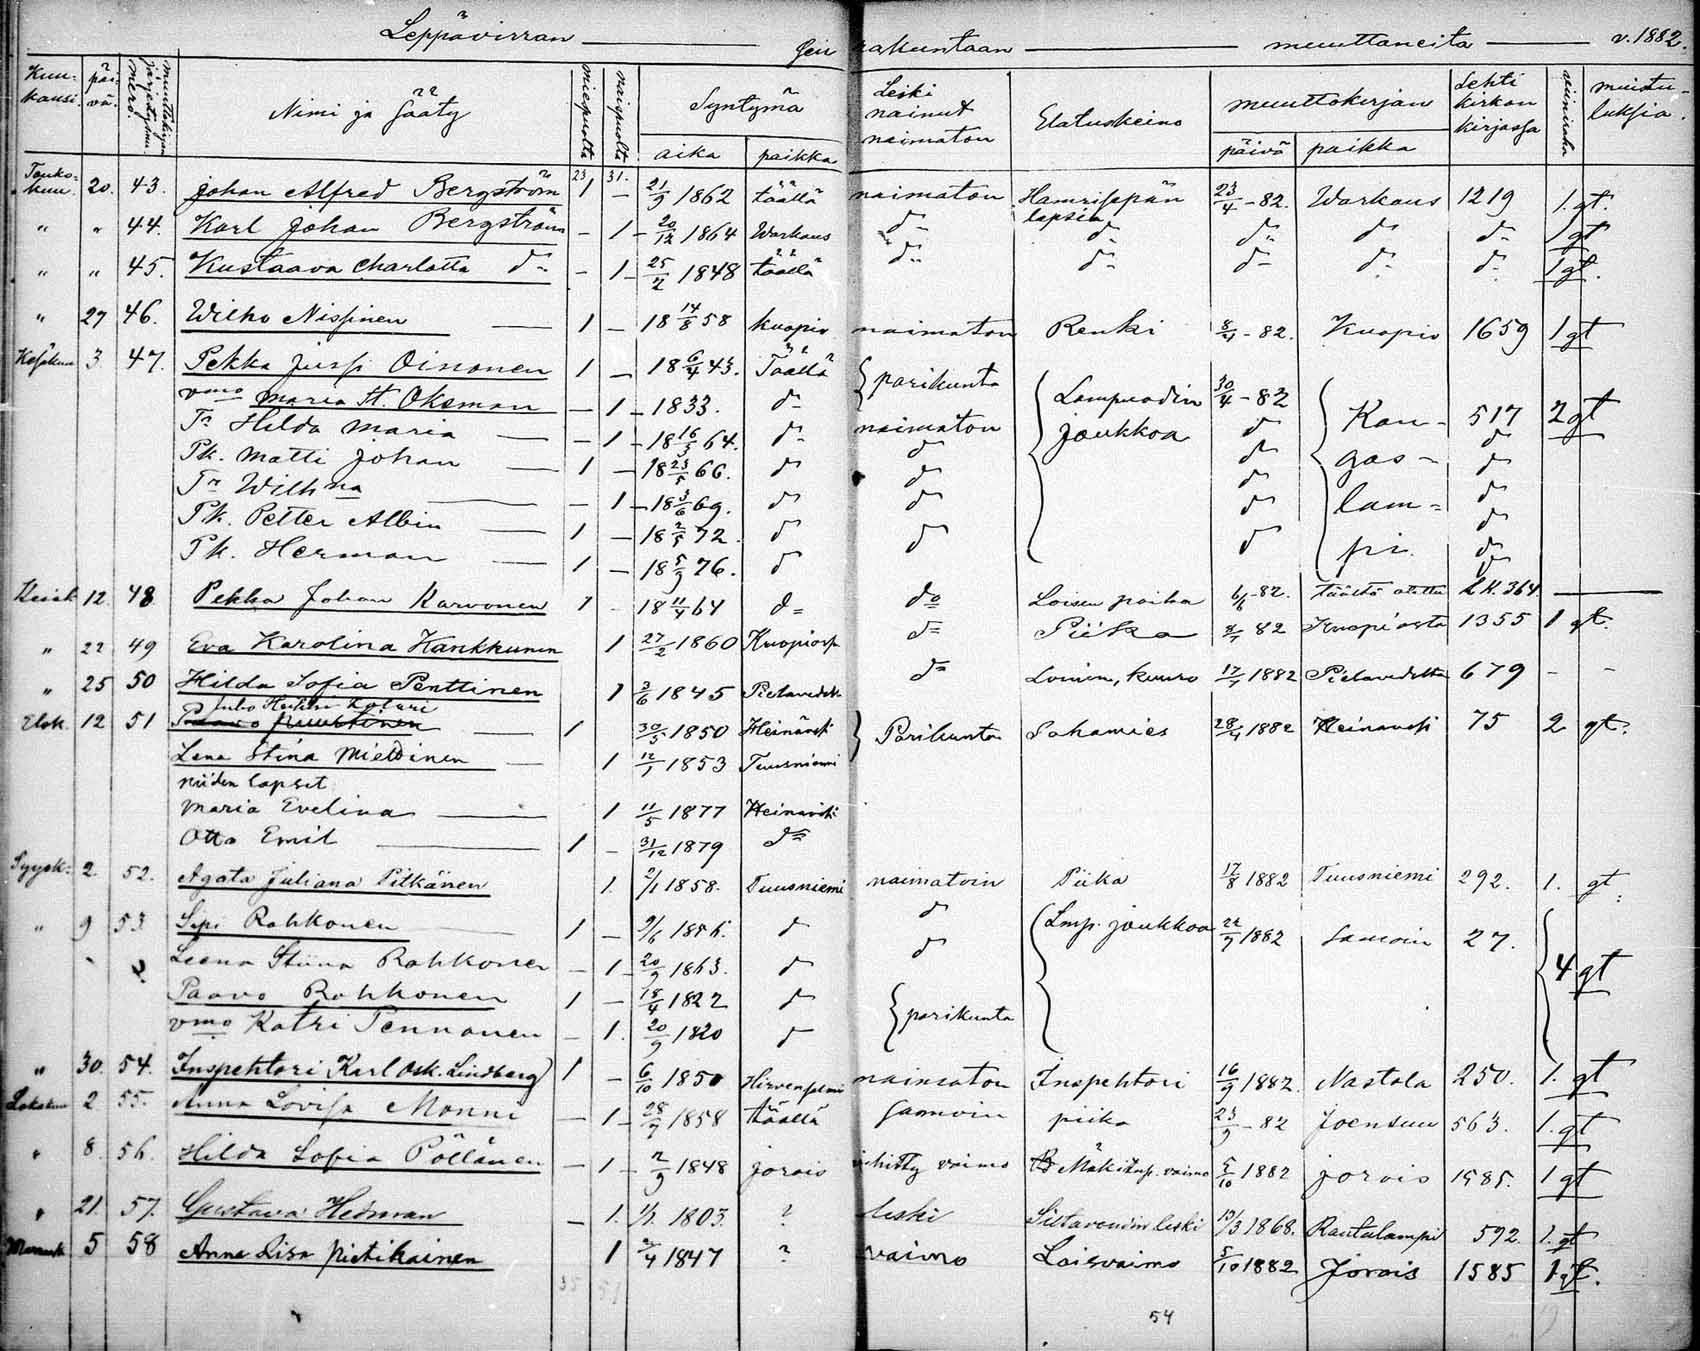 Leppävirran Seurakuntaan muuttaneita v. 1882.
Kuu-kausi. päi-vä. muuttokirjan järjestysnumero. Nimi ja Sääty miespuolta naispuolta Syntymä aika paikka Leski nainut naimaton Elatuskeino muuttokirjan päivä paikka Lehti kirkon kirjassa muistu-luksia.
23. 31.
Touko-kuu. 20. 43. Johan Alfred Bergström 1 – 21/9 1862 täällä naimaton lapsia 23/4 -82. Warkaus 1219 1. gt.
" " 44. Karl Johan Bergström – 1 – 20/12 1864 Warkaus d:o d:o d:o d:o d:o 1 gt
" " 45. Kustaava Charlotta d:o – 1 – 25/2 1848 täällä d:o d:o d:o d:o d:o 1 gt.
" 27 46. Wilho Nissinen 1 – 18 14/8 58 Kuopio naimaton Renki 8/4 -82. Kuopio 1659 1 gt
Kesäkuu 3. 47. Pekka Jussi Oinonen 1 – 18 6/4 43. Täällä parikunta Lampuodin joukkoa 30/4 -82 Kan-gas-lam-pi. 517 2 gt
vmo Maria St. Oksman – 1 – 1833. d:o
Tr Hilda Maria – 1 – 18 16/5 64. d:o naimaton d:o d:o
Pk. Matti Johan 1 – 18 23/5 66. d:o d:o d:o d:o
Tr Wilhma – 1 – 18 3/6 69. d:o d:o d:o d:o
Pk. Petter Albin 1 – 18 2/5 72. d:o d:o d:o d:o
Pk. Herman 1 – 18 5/9 76. d:o d:o d:o d:o
Heinäk 12. 48 Pekka Johan Karvonen 1 – 18 11/4 64 d:o d:o Loisen poika 6/6 -82. täältä otettu LK. 364 —
" 22 49 Eva Karolina Hankkunen 1 27/2 1860 Kuopiosta d:o Piika 82 Kuopiosta 1355 1 gt.
" 25 50 Hilda Sofia Penttinen 1 3/6 1845 Pielavedeltä d:o Loinen, kuuro 1882 Pielavedeltä 679 – –
Elok. 12 51 Juho Heikki Koluri Paavo Juustinen 1 30/5 1850 Heinävesi Parikunta Sahamies 1882 Heinävesi 75 2 gt.
Lena Stina Miettinen 1 12/1 1853 Tuusniemi
niiden lapset
Maria Evelina 1 11/5 1877 Heinävesi
Otto Emil 1 – 31/12 1879 d:o
Syysk: 2. 52. Agata Juliana Pitkänen 1. 2/1 1858. Tuusniemi naimatoin Piika 17/8 1882 Tuusniemi 292. 1. gt
" 9 53 Sipi Rahkonen 1 – 9/6 1856. d:o d:o Lmp. joukkoa 1882 Samoin 27. 4 gt
Leena Stiina Rahkonen – 1 – 20/9 1863. d:o d:o
Paavo Rahkonen 1 – 18/4 1822 d:o parikunta
vmo Katri Pennanen – 1. 20/9 1820 d:o
" 30. 54. Inspehtori Karl Osk. Lindberg 1 – 6/10 1850 Hirvensalmi naimaton Inspehtori 16/9 1882. Nastola 250. 1. gt
Lokakuu 2 55. Anna Lovisa Monni – 1 – 1858 täällä samoin piika 23/9 -82 Joensuu 563. 1. gt
" 8. 56. Hilda Sofia Pöllänen – 1 – 2/9 1848 Jorois vihitty vaimo Mäkitup. vaimo 5/10 1882 Jorois 1585. 1 gt
" 21. 57. Gustava Hedman – 1. 1/1. 1803. ? leski Siltavoudin leski 1868. Rautalampi 592. 1. gt
Marrask 5 58 Anna Lisa Pietikäinen 1 1847 ? vaimo Loisvaimo 5/10 1882 Jorois 1585 1 gt.
35 51
54